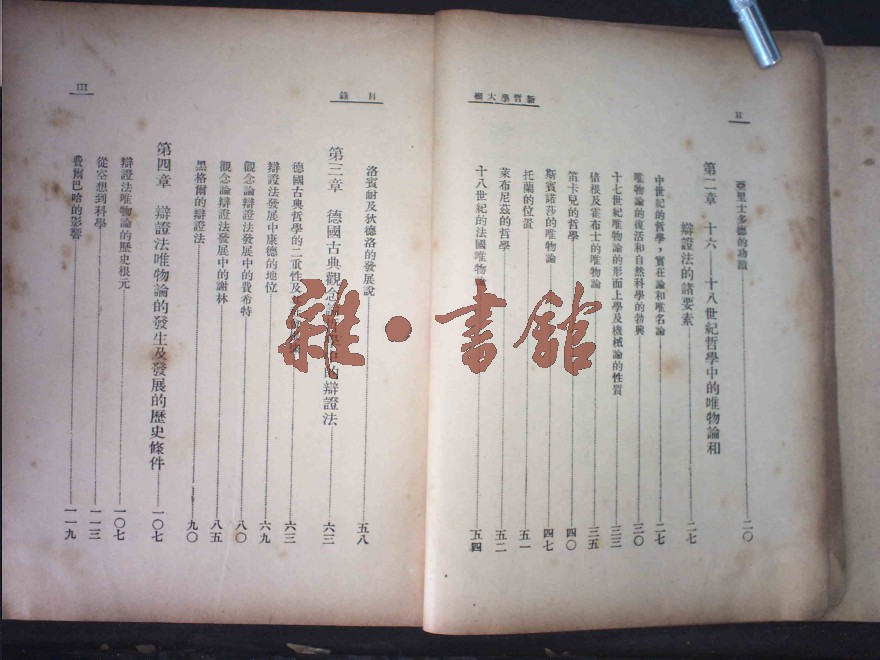 II
新哲學大綱
亞里士多德的功蹟 二〇
第二章 十六——十八世紀哲學中的唯物論和
辯證法的諸要素 二七
中世紀的哲學，實在論和唯名論 二七
唯物論的復活和自然科學的勃興 三〇
十七世紀唯物論的形而上學及機械論的性質 三三
倍根及霍布士的唯物論 三五
笛卡兒的哲學 四〇
斯賓諾莎的唯物論 四七
托蘭的位置 五一
萊布尼茲的哲學 五二
十八世紀的法國唯物論 五四
目錄
III
洛賓耐及狄德洛的發展說 五八
第三章 德國古典觀念論 的辯證法 六三
德國古典哲學的二重性及 六三
辯證法發展中康德的地位 六九
觀念論辯證法發展中的費希特 八〇
觀念論辯證法發展中的謝林 八五
黑格爾的辯證法 九〇
第四章 辯證法唯物論的發生及發展的歷史條件 一〇七
辯證法唯物論的歷史根元 一〇七
從空想到科學 一一三
費爾巴哈的影響 一一九
雜·書館